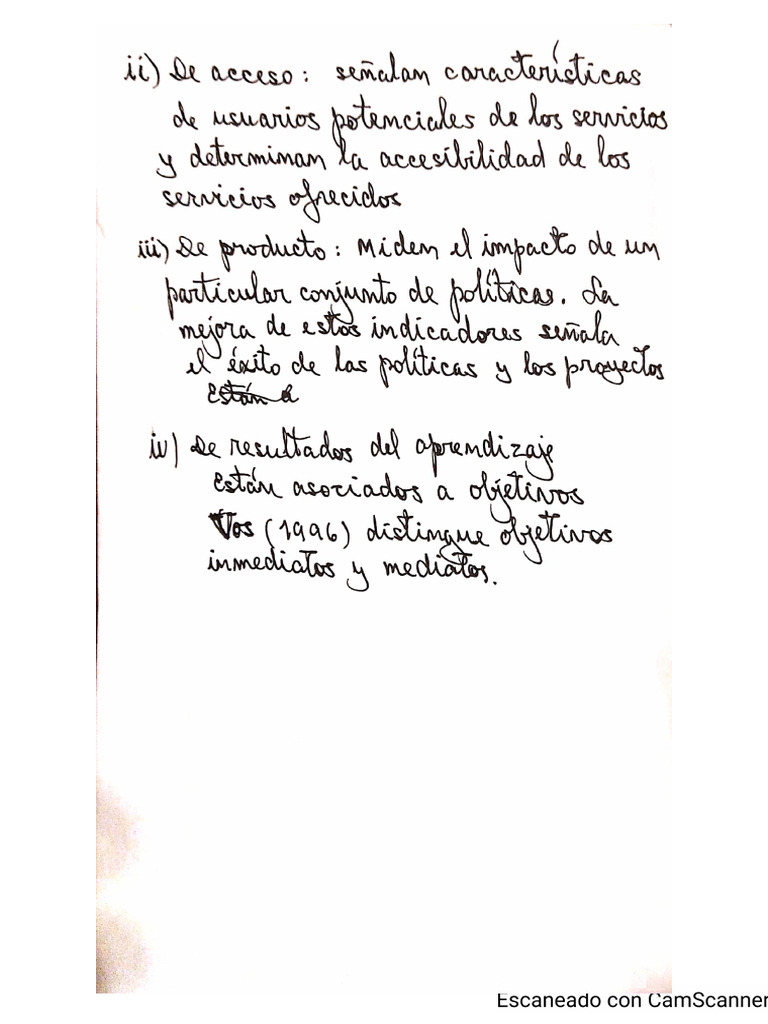 ii) De acceso: señalan características
de usuarios potenciales de los servicios
y determinan la accesibilidad de los
servicios ofrecidos
iii) De producto: Miden el impacto de un
particular conjunto de políticas. La
mejora de estos indicadores señala
el éxito de las políticas y los proyectos
Están a
iv) De resultados del aprendizaje
Están asociados a objetivos
Vos (1996) distingue objetivos
inmediatos y mediatos.
Escaneado con CamScanner